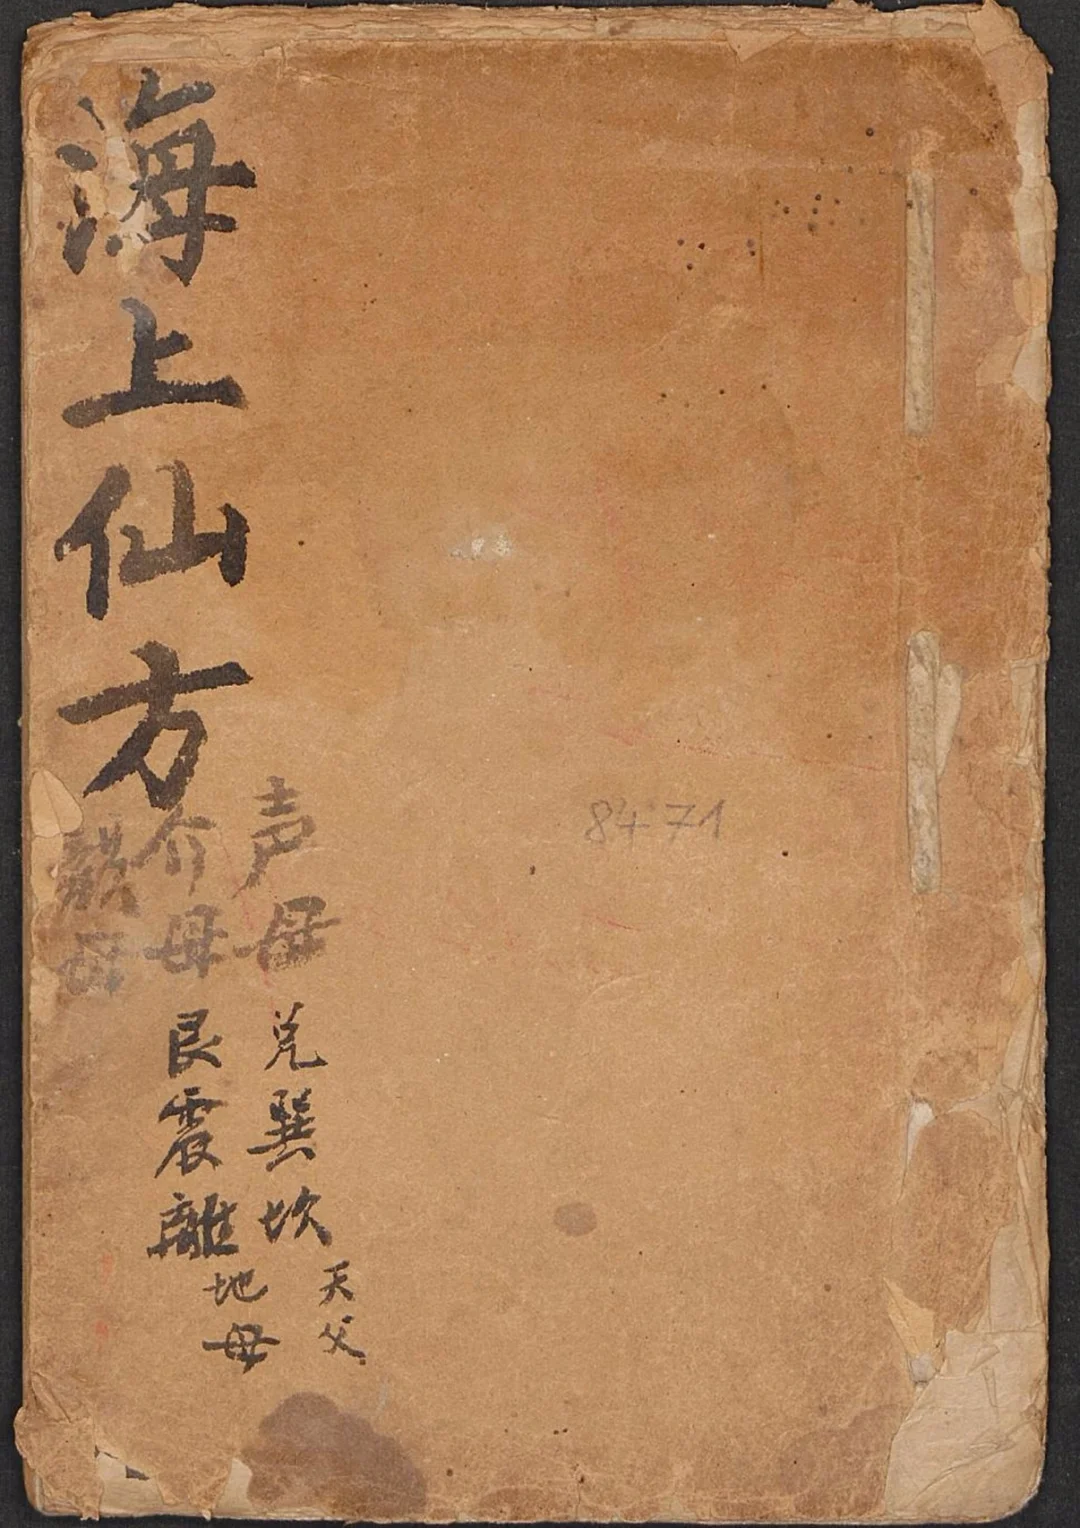 海上仙方
声母
介母
母
兑巽坎
天父
艮震離
地母
8471